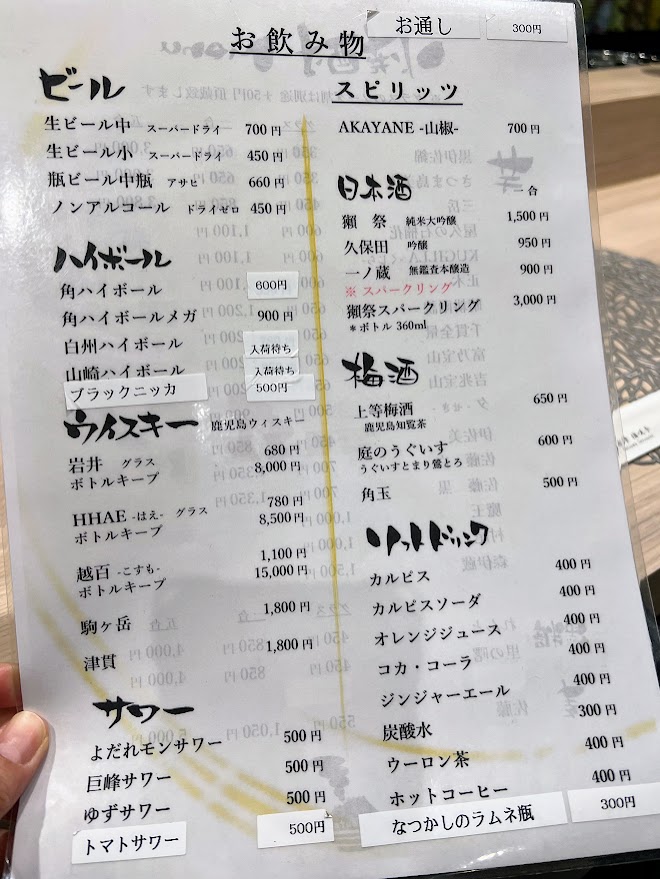 お飲み物
お通し 300円
ビール
生ビール中 スーパードライ 700円
生ビール小 スーパードライ 450円
瓶ビール中瓶 アサヒ 660円
ノンアルコール ドライゼロ 450円
ハイボール
角ハイボール 600円
角ハイボールメガ 900円
白州ハイボール 入荷待ち
山崎ハイボール 入荷待ち
ブラックニッカ 500円
ウイスキー 鹿児島ウィスキー
岩井 グラス 680円
ボトルキープ 8,000円
HHAE -はえ- グラス 780円
ボトルキープ 8,500円
越百 -こすも- 1,100円
ボトルキープ 15,000円
駒ヶ岳 1,800円
津貫 1,800円
サワー
よだれモンサワー 500円
巨峰サワー 500円
ゆずサワー 500円
トマトサワー 500円
スピリッツ
AKAYANE -山椒- 700円
日本酒 一合
獺祭 純米大吟醸 1,500円
久保田 吟醸 950円
一ノ蔵 無鑑査本醸造 900円
※ スパークリング
獺祭スパークリング 3,000円
*ボトル 360ml
梅酒
上等梅酒 650円
鹿児島知覧茶
庭のうぐいす 600円
うぐいすとまり鶯とろ
角玉 500円
ソフトドリンク
カルピス 400円
カルピスソーダ 400円
オレンジジュース 400円
コカ・コーラ 400円
ジンジャーエール 400円
炭酸水 300円
ウーロン茶 400円
ホットコーヒー 400円
なつかしのラムネ瓶 300円